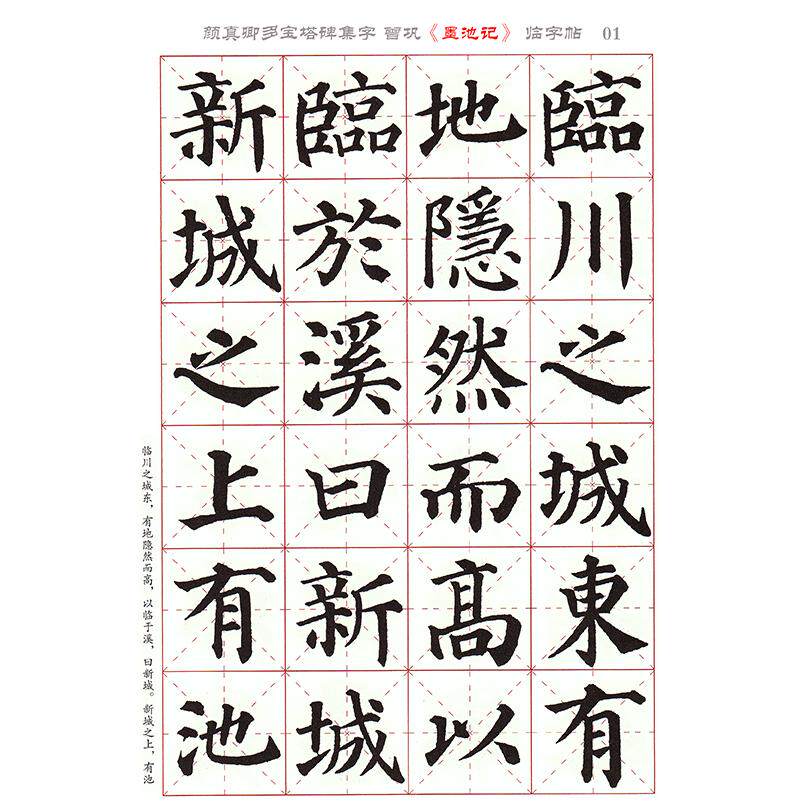 颜真卿多宝塔碑集字 曾巩《墨池记》 临字帖 01
臨川之城東有
地隱然而高以
臨於溪曰新城
新城之上有池
临川之城东，有地隐然而高，以临于溪，曰新城。新城之上，有池